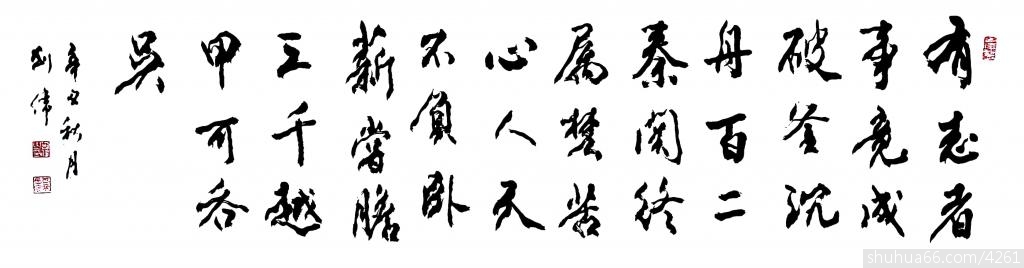 有志者
事竟成
破釜沉
舟百二
秦關終
属楚苦
心人天
不負卧
薪嘗膽
三千越
甲可吞
吳
辛丑秋月
刘伟
shuhua66.com/4261